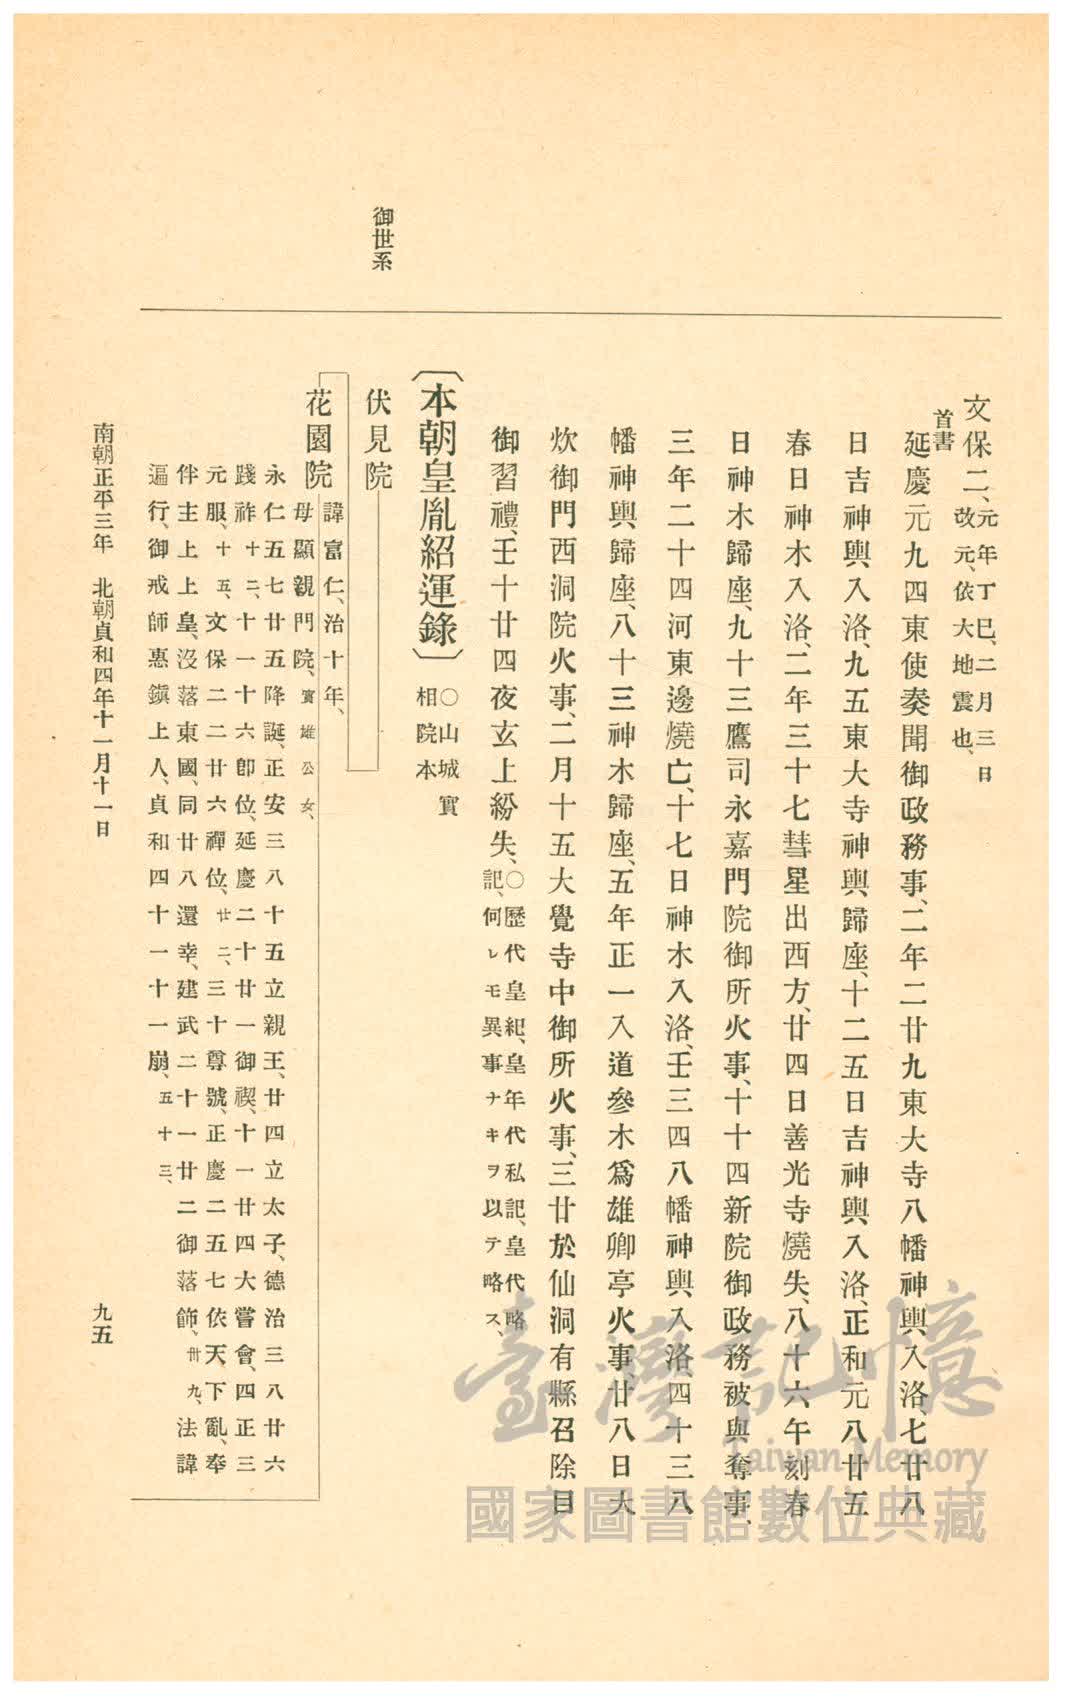 御世系
文保二、元年丁巳、二月三日
改元、依大地震也、
首書
延慶元九四東使奏聞御政務事、二年二廿九東大寺八幡神輿入洛、七廿八
日吉神輿入洛、九五東大寺神輿歸座、十二五日吉神輿入洛、正和元八廿五
春日神木入洛、二年三十七彗星出西方、廿四日善光寺燒失、八十六午刻春
日神木歸座、九十三鷹司永嘉門院御所火事、十十四新院御政務被與奪事、
三年二十四河東邊燒亡、十七日神木入洛、壬三四八幡神輿入洛、四十三八
幡神輿歸座、八十三神木歸座、五年正一入道參木爲雄卿亭火事、廿八日大
炊御門西洞院火事、二月十五大覺寺中御所火事、三廿於仙洞有縣召除目
御習禮、壬十廿四夜玄上紛失、
〇歷代皇紀、皇年代私記、皇代略
記、何レモ異事ナキヲ以テ略ス、
〔本朝皇胤紹運錄〕
〇山城實
相院本
伏見院
花園院
諱富仁、治十年、
母顯親門院、實雄公女、
永仁五七廿五降誕、正安三八十五立親王、廿四立太子、德治三八廿六
踐祚十二、十一十六卽位、延慶二十廿一御禊、十一廿四大嘗會、四正三
元服、十五、文保二二廿六禪位、廿二、三十尊號、正慶二五七依天下亂、奉
伴主上上皇、沒落東國、同廿八還幸、建武二十一廿二御落飾、卅九、法諱
遍行、御戒師惠鎭上人、貞和四十一十一崩、五十三、
南朝正平三年　北朝貞和四年十一月十一日
九五
臺灣記憶
Taiwan Memory
國家圖書館數位典藏